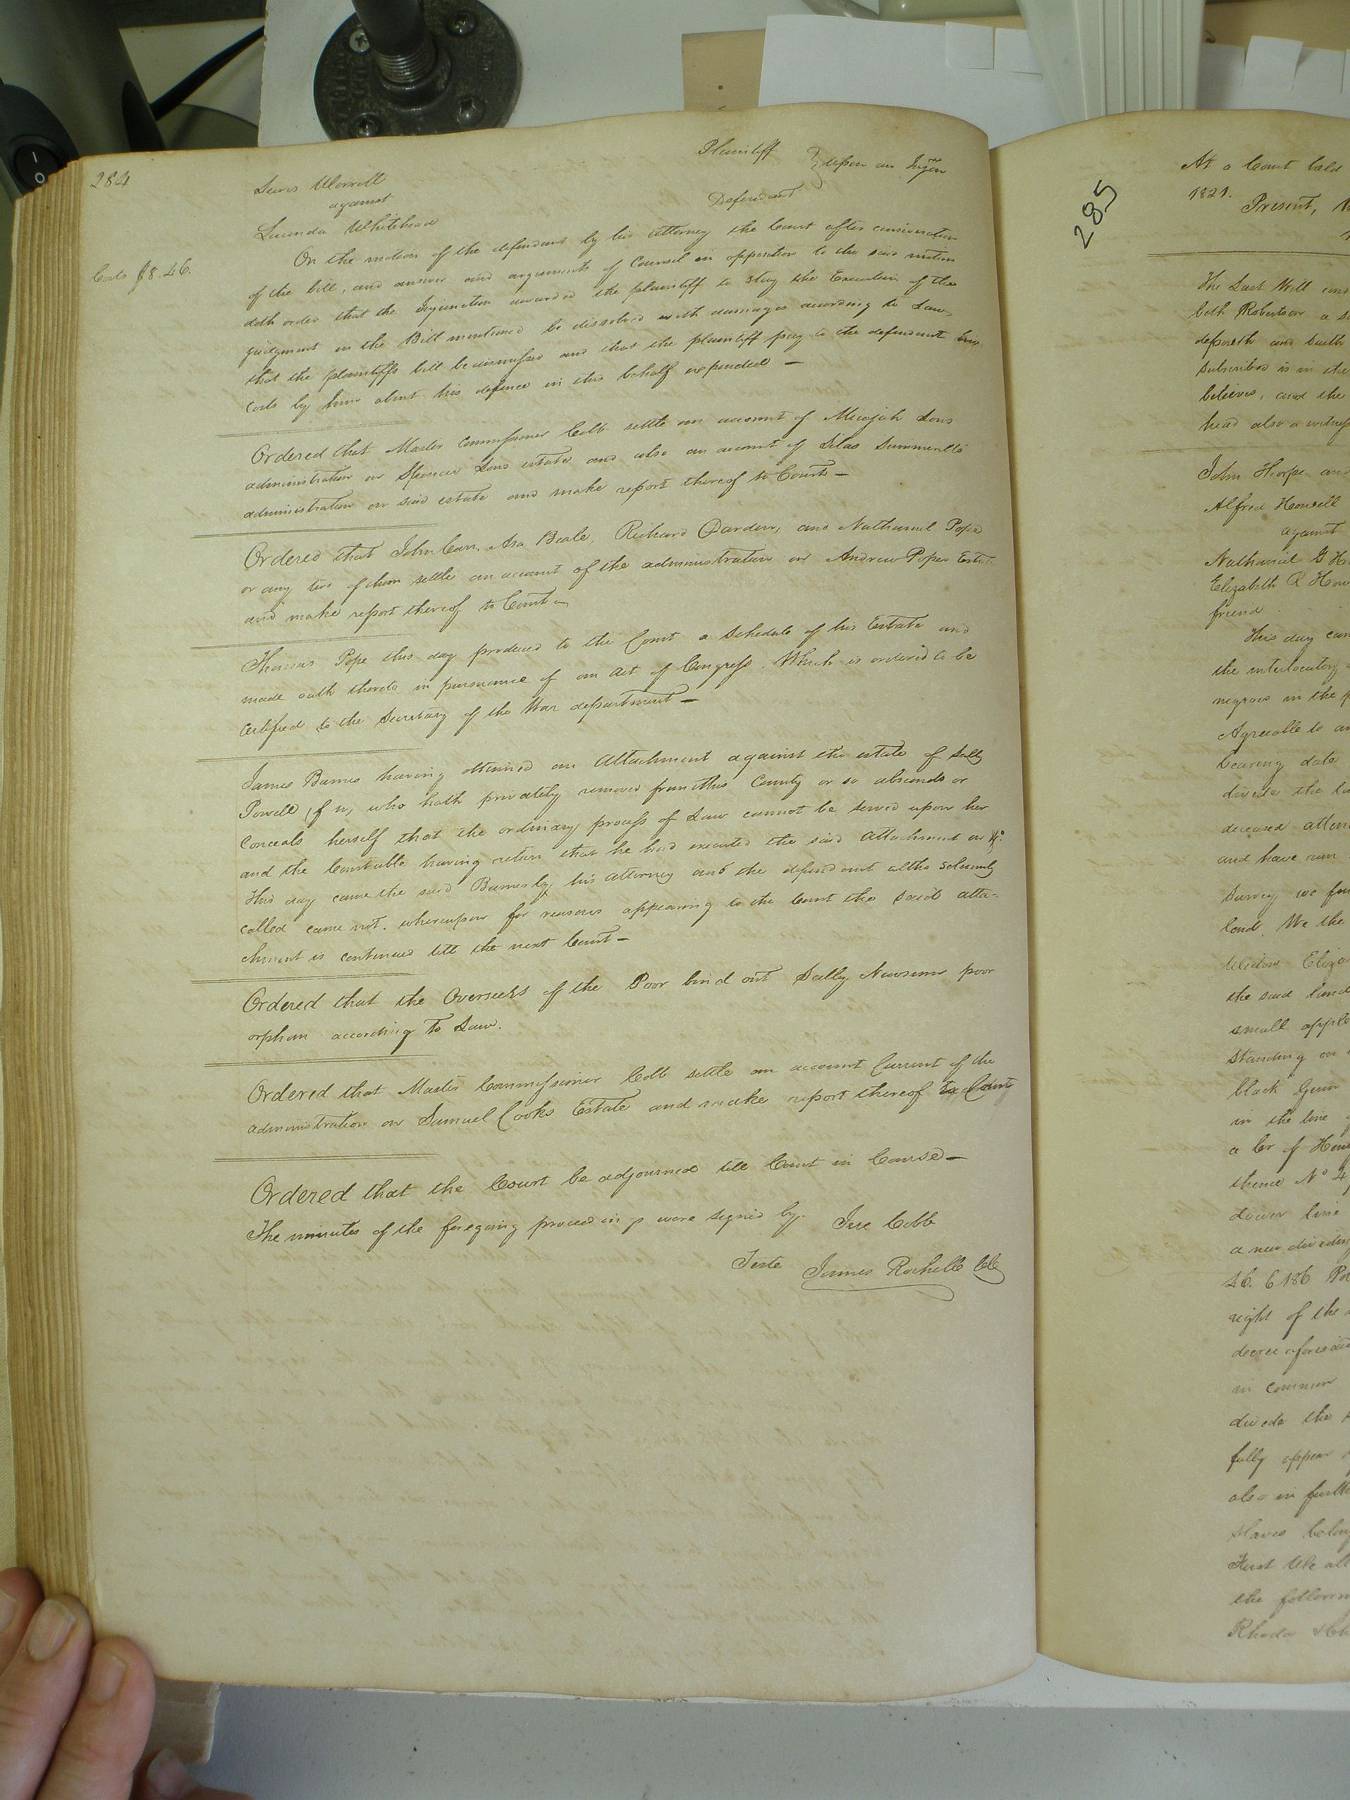 284
Lewis Worrell Plaintiff
against upon an Injon
Lucinda Whitehead Defendant
Costs $8.46.
On the motion of the defendant by his attorney the Court after consideration
of the bill, and answer and arguments of Counsel in opposition to the said motion
doth order that the Injunction awarded the plaintiff to stay the Execution of the
judgment in the Bill mentioned be dissolved with damages according to Law,
that the plaintiffs bill be dismissed and that the plaintiff pay to the defendant his
costs by him about his defence in this behalf expended —
Ordered that Master Commissioner Cobb settle an account of Micajah
administration on Spencer estate and also an account of Silas Summerells
administration on said estate and make report thereof to Court —
Ordered that John Carr, Asa Beale, Richard Darden, and Nathaniel Pope
or any two of them settle an account of the administration on Andrew Popes Estate
and make report thereof to Court —
Thomas Pope this day produced to the Court a Schedule of his Estate and
made oath thereto in pursuance of an act of Congress. Which is ordered to be
certified to the Secretary of the War department —
James Barnes having obtained an Attachment against the estate of Sally
Powell (f n) who hath privately removed from this County or so absconds or
conceals herself that the ordinary process of Law cannot be served upon her
and the Constable having return that he had executed the said Attachment on &c.
This day came the said Barnes by his attorney and the defendant altho solemnly
called came not. whereupon for reasons appearing to the Court the said atta-
chment is continued till the next Court —
Ordered that the Overseers of the Poor bind out Sally Newsom poor
orphan according to Law.
Ordered that Master Commissioner Cobb settle an account Current of the
administration on Samuel Cooks Estate and make report thereof to Court
Ordered that the Court be adjourned till Court in Course —
The minutes of the foregoing proceedings were signed by Jere Cobb
Teste James Rochelle Clk
285
At a Court held
1821.
Present,
The Last Will and
beth Robertson a
deposeth and saith
subscribed is in the
believes, and the
head also a witness
John Thorpe and
Alfred Howell
against
Nathaniel G
Elizabeth R
friend
This day came
the interlocutory
negroes in the
Agreeable to an
bearing date
divide the
deceased
and have run
Survey we
land. We the
Widow
the said land
small apple
standing on
black Gum
in the line
a Cor of
thence No 4
dower line
a new dividing
46. 6 186
right of the
decree aforesaid
in common
divide the
fully appear
also in further
slaves
First We
the following
Rhoda